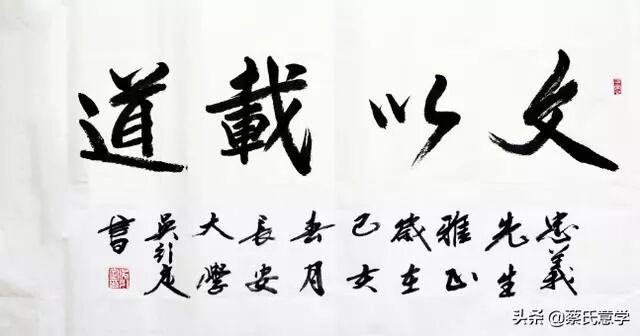 文以載道
忠義
先生
雅正
歲在
己亥
春月
長安
大學
吳
書
头条 @蔡氏意学